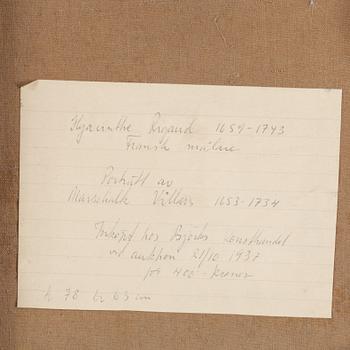 Hyacinthe Rigaud 1659-1743
Fransk målare
Porträtt av
Marschalk Villars 1653-1734
Inköpt hos Björks Konsthandel
vid auktion 21/10 1937
för 400 kronor
h 78 br 63 cm